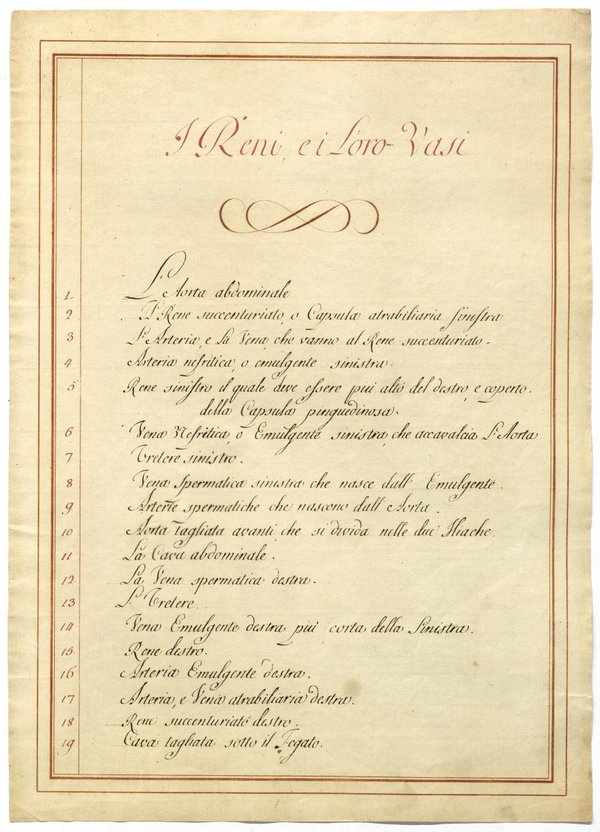 I Reni, e i Loro Vasi
1 L'Aorta abdominale
2 Il Rene succenturiato, o Capsula atrabiliaria sinistra
3 L'Arteria, e La Vena, che vanno al Rene succenturiato.
4 Arteria nefritica, o emulgente sinistra.
5 Rene sinistro il quale deve essere piú alto del destro, e coperto
della Capsula pinguedinosa.
6 Vena Nefritica, o Emulgente sinistra, che accavalcia L'Aorta
7 Uretere sinistro.
8 Vena Spermatica sinistra che nasce dall' Emulgente.
9 Arterie spermatiche che nascono dall' Aorta.
10 Aorta tagliata avanti, che si divida nelle due Iliache.
11 La Cava abdominale.
12 La Vena spermatica destra.
13 L'Uretere.
14 Vena Emulgente destra piú corta della Sinistra.
15 Rene destro.
16 Arteria Emulgente destra.
17 Arteria, e Vena atrabiliaria destra.
18 Rene succenturiato destro.
19 Cava tagliata sotto il Fegato.